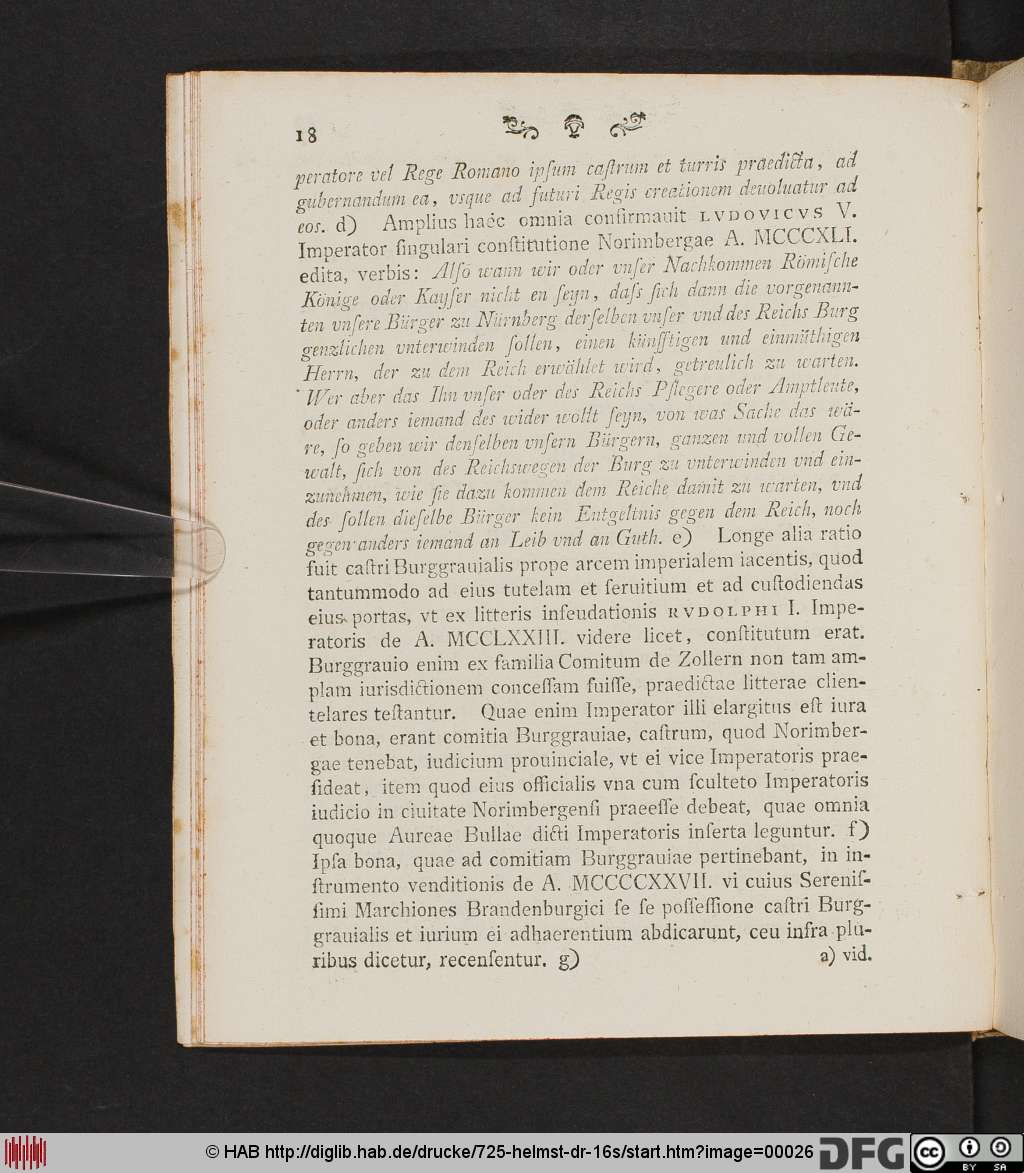 18
peratore vel Rege Romano ipſum caſtrum et turris praedicta, ad
gubernandum ea, vsque ad futuri Regis creationem deuoluatur ad
eos. d) Amplius haec omnia confirmauit LVDOVICVS V.
Imperator ſingulari conſtitutione Norimbergae A. MCCCXLI.
edita, verbis: Alſo wann wir oder vnſer Nachkommen Römiſche
Könige oder Kayſer nicht en ſeyn, daſs ſich dann die vorgenann-
ten vnſere Bürger zu Nürnberg derſelben vnſer vnd des Reichs Burg
genzlichen vnterwinden ſollen, einen künfftigen und einmüthigen
Herrn, der zu dem Reich erwählet wird, getreulich zu warten.
Wer aber das Ihn vnſer oder des Reichs Pflegere oder Amptleute,
oder anders iemand des wider wollt ſeyn, von was Sache das wä-
re, ſo geben wir denſelben vnſern Bürgern, ganzen und vollen Ge-
walt, ſich von des Reichswegen der Burg zu vnterwinden vnd ein-
zunehmen, wie ſie dazu kommen dem Reiche damit zu warten, vnd
des ſollen dieſelbe Bürger kein Entgeltnis gegen dem Reich, noch
gegen anders iemand an Leib vnd an Guth. e) Longe alia ratio
fuit caſtri Burggrauialis prope arcem imperialem iacentis, quod
tantummodo ad eius tutelam et ſeruitium et ad cuſtodiendas
eius portas, vt ex litteris infeudationis RVDOLPHI I. Impe-
ratoris de A. MCCLXXIII. videre licet, conſtitutum erat.
Burggrauio enim ex familia Comitum de Zollern non tam am-
plam iurisdictionem conceſſam fuiſſe, praedictae litterae clien-
telares teſtantur. Quae enim Imperator illi elargitus eſt iura
et bona, erant comitia Burggrauiae, caſtrum, quod Norimber-
gae tenebat, iudicium prouinciale, vt ei vice Imperatoris prae-
ſideat, item quod eius officialis vna cum ſculteto Imperatoris
iudicio in ciuitate Norimbergenſi praeeſſe debeat, quae omnia
quoque Aureae Bullae dicti Imperatoris inſerta leguntur. f)
Ipſa bona, quae ad comitiam Burggrauiae pertinebant, in in-
ſtrumento venditionis de A. MCCCCXXVII. vi cuius Sereniſ-
ſimi Marchiones Brandenburgici ſe ſe poſſeſſione caſtri Burg-
grauialis et iurium ei adhaerentium abdicarunt, ceu infra plu-
ribus dicetur, recenſentur. g)
a) vid.
© HAB http://diglib.hab.de/drucke/725-helmst-dr-16s/start.htm?image=00026
DFG
cc
BY SA